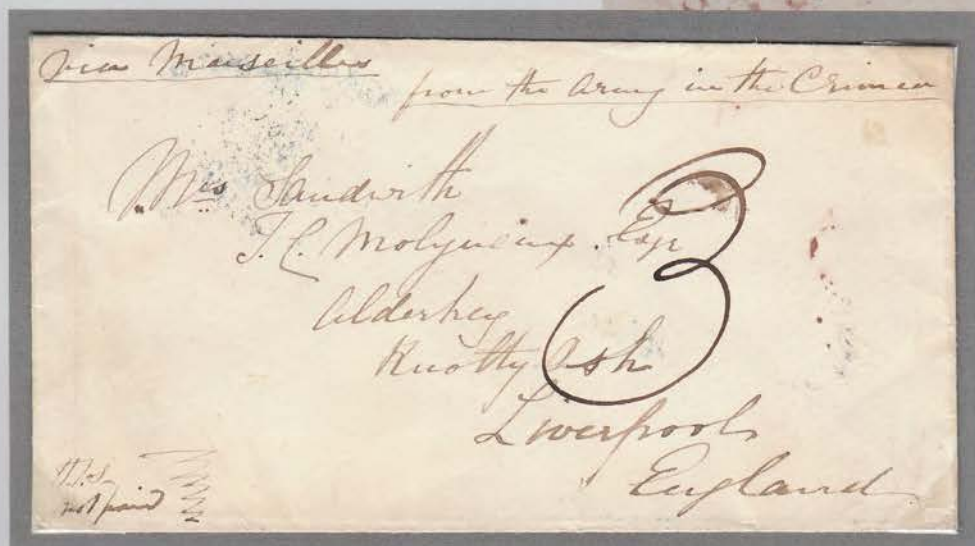 via Marseilles
from the Army in the Crimea
Mrs Sandwith
T. C. Molyneux Esqr
Alderhey
Knotty Ash
Liverpool
England
3
not paid